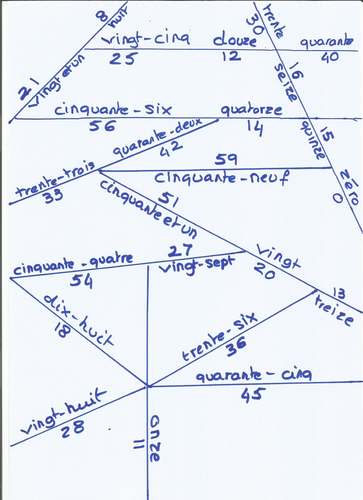 huit
8
trente
30
vingt-cinq
25
douze
12
quarante
40
21
vingt et un
16
seize
cinquante-six
56
quatorze
14
15
quinze
quarante-deux
42
59
cinquante-neuf
zéro
0
trente-trois
33
51
cinquante et un
27
vingt-sept
vingt
20
cinquante-quatre
54
13
treize
dix-huit
18
trente-six
36
quarante-cinq
45
vingt-huit
28
onze
11